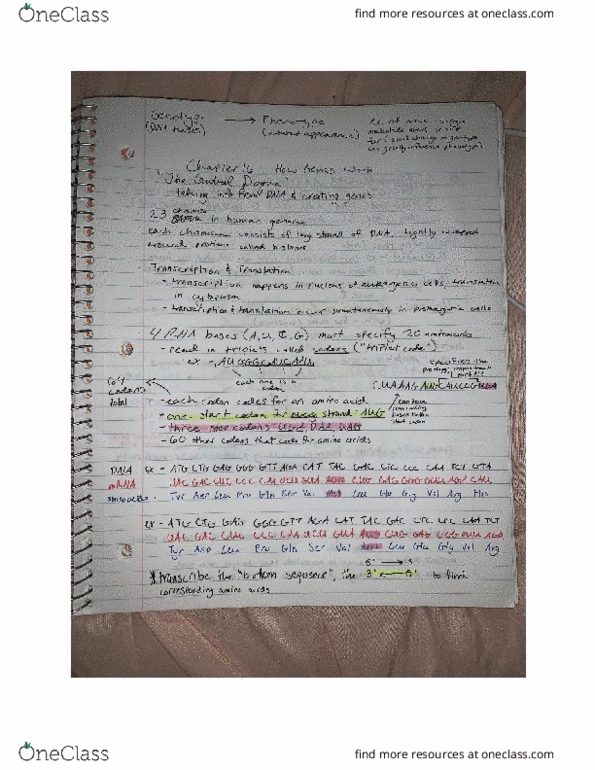 OneClass
find more resources at oneclass.com
Genotype → Phenotype
(DNA bases) (outward appearance)
Chapter 6 How Genes Work
"The Central Dogma"
taking info from DNA & creating genes
23 in human genome
each chromosome consists of long strand of DNA, tightly wrapped
around proteins called histones
Transcription & Translation
- transcription happens in nucleus of eukaryotic cells, translation
in cytoplasm
- transcription & translation occur simultaneously in prokaryotic cells
4 RNA bases (A, U, C, G) must specify 20 amino acids
- read in triplets called codons ("triplet code")
each one is a
codon
64
codons
total
- each codon codes for an amino acid
- one start codon for every strand: AUG
- three stop codons: UGA, UAA, UAG
- 60 other codons that code for amino acids
DNA ex - ATG CTG GAG GGG GTT AGA CAT TAC GAC CTC CCC CAA TCT GTA
mRNA UAC GAC CUC CCC CAA UCU GUA AUG CUG GAG GGG GUU AGA CAU
amino acids - Tyr Asp Leu Pro Gln Ser Val Leu Glu Gly Val Arg His
ex - ATG CTG GAG GGG GTT AGA CAT TAC GAC CTC CCC CAA TCT
UAC GAC CUC CCC CAA UCU GUA AUG CUG GAG GGG GUU AGA
Tyr Asp Leu Pro Gln Ser Val Leu Glu Gly Val Arg
5' → 3'
* transcribe the "bottom sequence", the 3' ← 5' to find
corresponding amino acids
OneClass
find more resources at oneclass.com